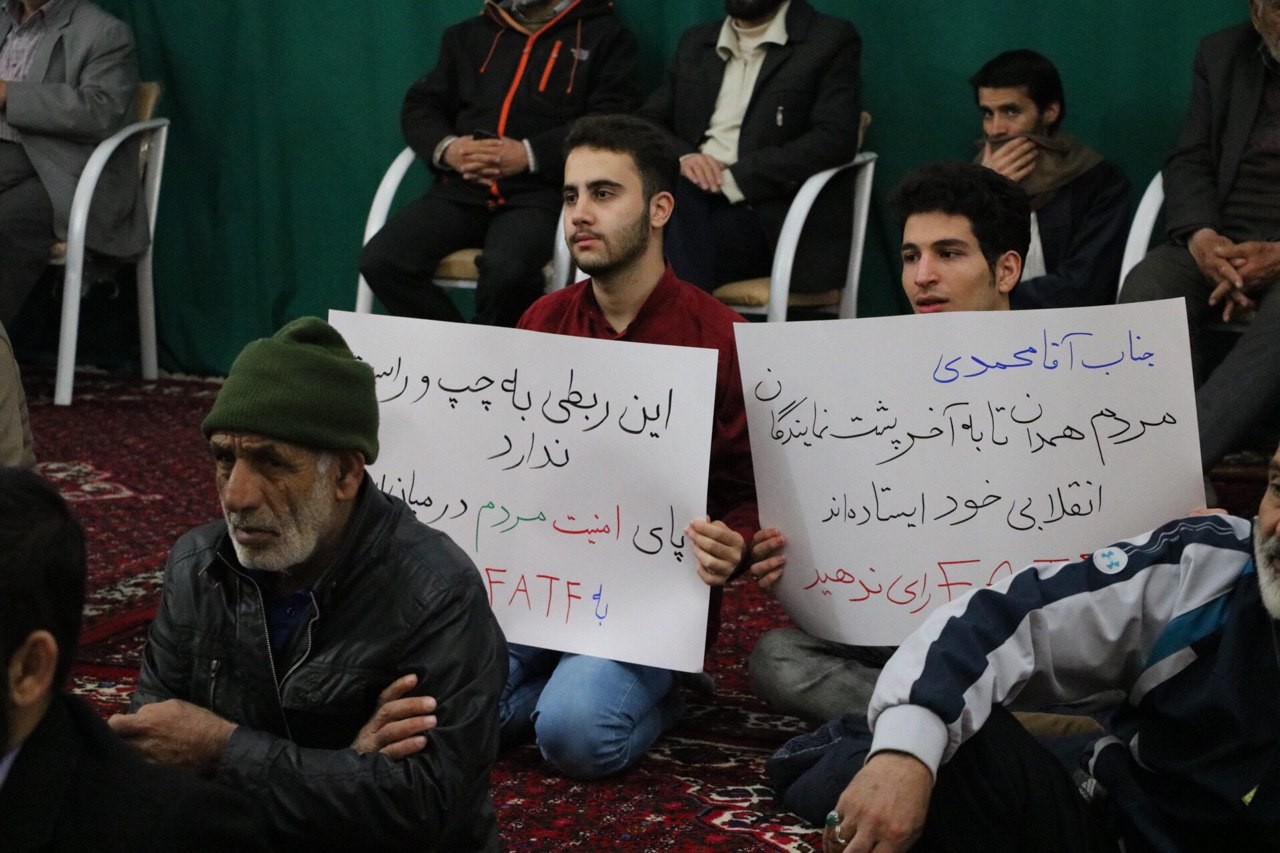 این ربطی به چپ و راست
ندارد
پای امنیت مردم در میان
به FATF
جناب آقا محمدی
مردم همدان تا به آخر پشت نمایندگان
انقلابی خود ایستاده‌اند
رای ندهید